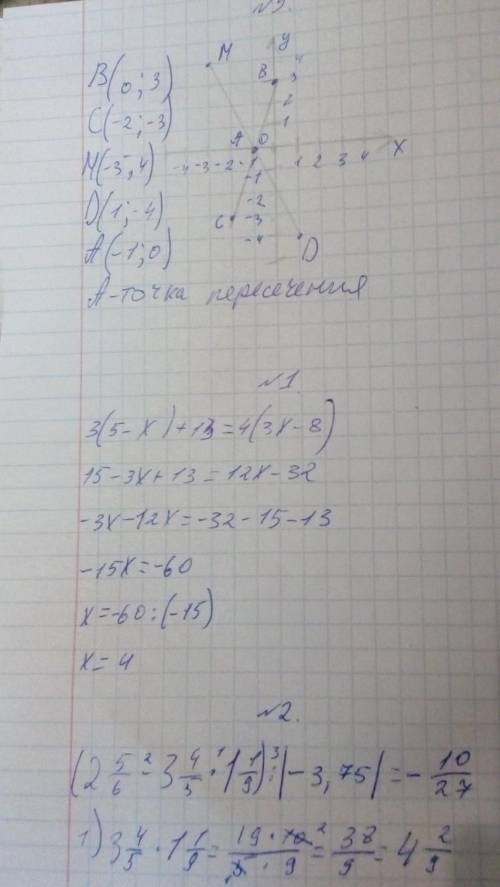 №3.
B(0; 3)
C(-2; -3)
M(-3; 4)
D(1; -4)
A(-1; 0)
M
y
4
B 3
2
1
A 0
-4 -3 -2 -1 1 2 3 4 X
-1
-2
C -3
-4
D
A-точка пересечения
№1.
3(5-x)+13=4(3x-8)
15-3x+13=12x-32
-3x-12x=-32-15-13
-15x=-60
x=-60:(-15)
x=4
№2.
(2 5/6 ² - 3 4/5 · ¹ 1 1/9) ³ : |-3,75| = - 10/27
1) 3 4/5 · 1 1/9 = 19·10²/5·9 = 38/9 = 4 2/9